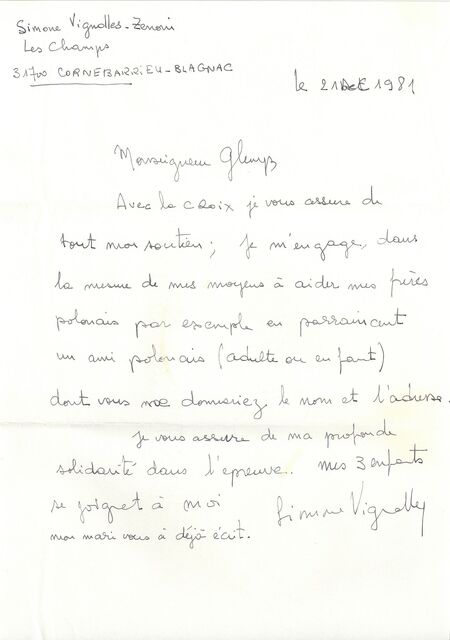 Simone Vignolles-Zenoni
Les Champs
31700 CORNEBARRIEU-BLAGNAC
le 21 DEC 1981
Monseigneur Glemp
Avec la CROIX je vous assure de
tout mon soutien; Je m'engage, dans
la mesure de mes moyens à aider mes frères
polonais par exemple en parrainant
un ami polonais (adulte ou enfant)
dont vous me donneriez le nom et l'adresse.
je vous assure de ma profonde
solidarité dans l'épreuve.. mes 3 enfants
se joignet à moi
Simone Vignolles
mon mari vous à déjà écrit.